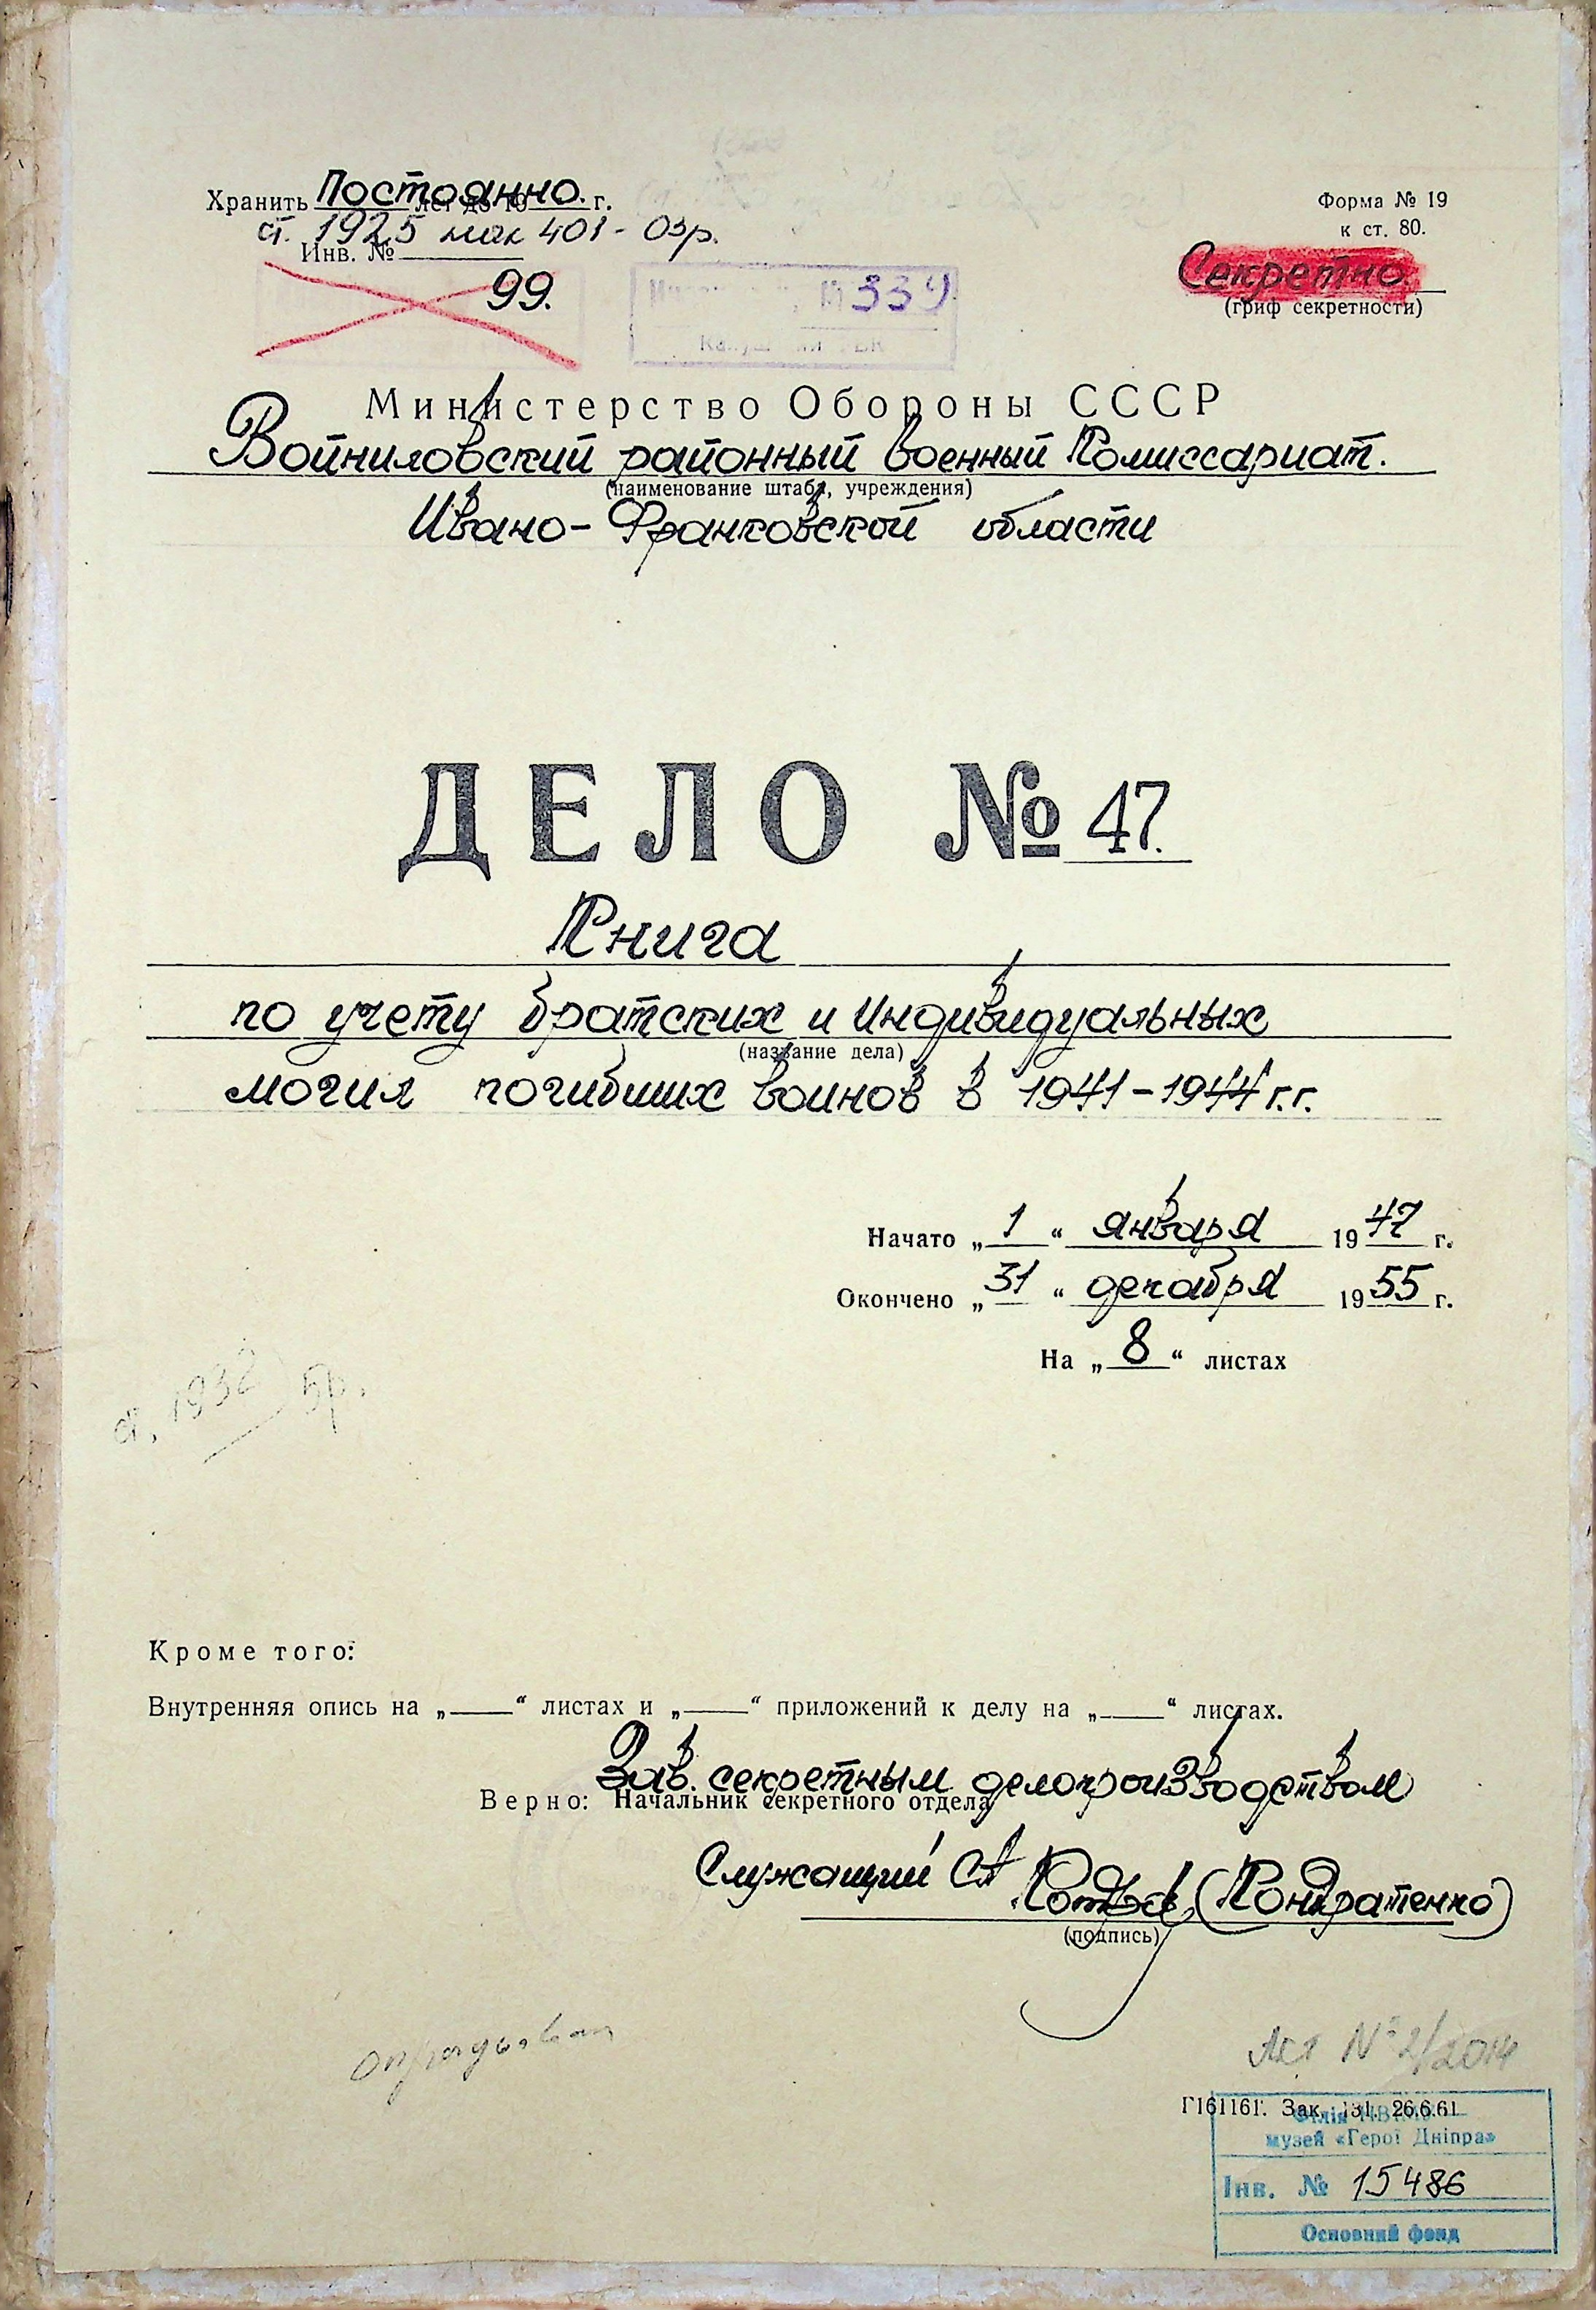 Хранить Постоянно. лет до 19 г.
ст. 1925 401 - 03р.
Инв. №
99.
№ 339
Форма № 19
к ст. 80.
Секретно.
(гриф секретности)
Министерство Обороны СССР
Войниловский районный военный Комиссариат.
(наименование штаба, учреждения)
Ивано-Франковской области
ДЕЛО № 47.
Книга
по учету братских и индивидуальных
(название дела)
могил погибших воинов в 1941-1944 г.г.
Начато „1“ января 1947 г.
Окончено „31“ декабря 1955 г.
На „8“ листах
ст. 1932 5р.
Кроме того:
Внутренняя опись на „ “ листах и „ “ приложений к делу на „ “ листах.
Зав. секретным делопроизводством
Верно: Начальник секретного отдела
Служащий СА (Кондратенко)
(подпись)
Акт № 2/2014
Г161161. Зак. 131. 26.6.61
Філія
музей «Герої Дніпра»
Інв. № 15486
Основний фонд